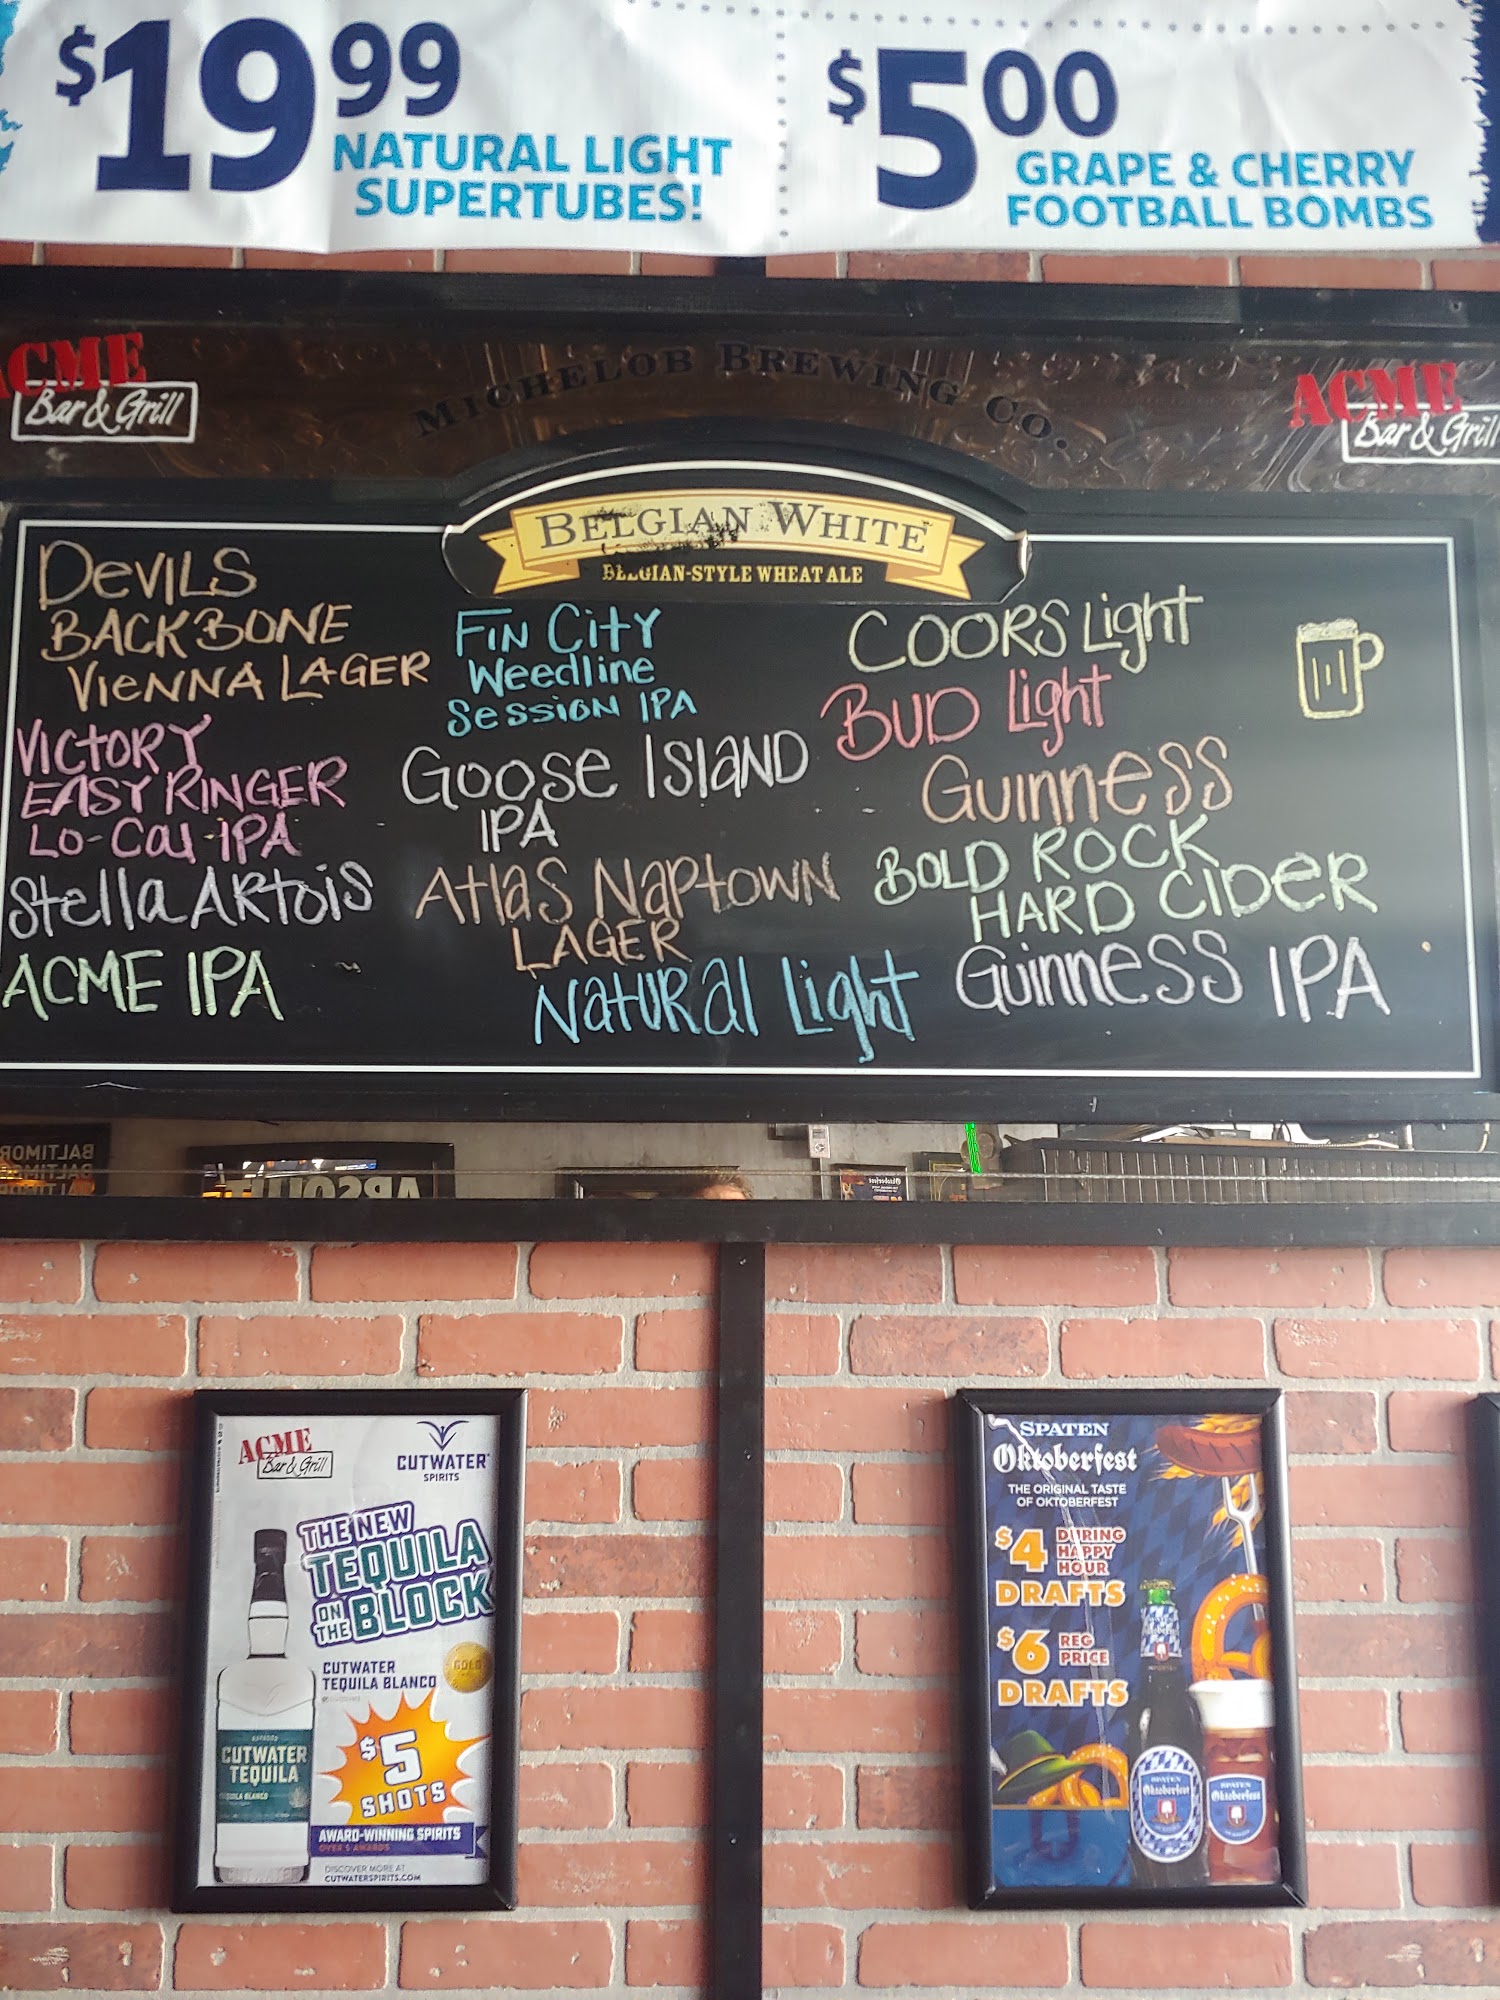 $19.99
NATURAL LIGHT
SUPERTUBES!
$5.00
GRAPE & CHERRY
FOOTBALL BOMBS
ACME
Bar & Grill
MICHELOB BREWING CO.
ACME
Bar & Grill
BELGIAN WHITE
BELGIAN-STYLE WHEAT ALE
DEVILS
BACKBONE
VIENNA LAGER
VICTORY
EASY RINGER
LO-CAL IPA
Stella ARTOIS
ACME IPA
FIN CITY
Weedline
SESSION IPA
GOOSE ISLAND
IPA
ATLAS NAPTOWN
LAGER
NATURAL Light
COORS Light
BUD Light
GUINNESS
BOLD ROCK
HARD CIDER
GUINNESS IPA
BALTIMOR
ABSOLUT
ACME
Bar & Grill
CUTWATER
SPIRITS
THE NEW
TEQUILA
ON THE BLOCK
CUTWATER
TEQUILA BLANCO
GOLD
$5
SHOTS
CUTWATER
TEQUILA
AWARD-WINNING SPIRITS
DISCOVER MORE AT
CUTWATERSPIRITS.COM
SPATEN
Oktoberfest
THE ORIGINAL TASTE
OF OKTOBERFEST
$4 DURING
HAPPY
HOUR
DRAFTS
$6 REG
PRICE
DRAFTS
SPATEN
Oktoberfest
SPATEN
Oktoberfest